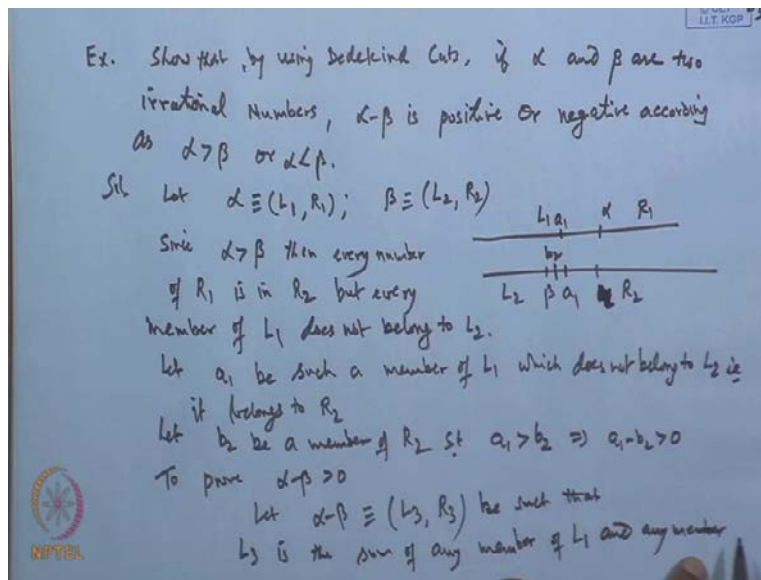 I.I.T. KGP
Ex. Show that, by using Dedekind Cuts, if α and β are two
irrational Numbers, α-β is positive or negative according
as α>β or α<β.
Sol. Let α≡(L₁,R₁); β≡(L₂,R₂)
L₁ a₁ α R₁
Since α>β then every number
b₂
of R₁ is in R₂ but every
L₂ β a₁ R₂
member of L₁ does not belong to L₂.
Let a₁ be such a member of L₁ which does not belong to L₂ ie
it belongs to R₂
Let b₂ be a member of R₂ st a₁>b₂ ⇒ a₁-b₂>0
To prove α-β>0
Let α-β≡(L₃,R₃) be such that
L₃ is the sum of any member of L₁ and any member
NPTEL